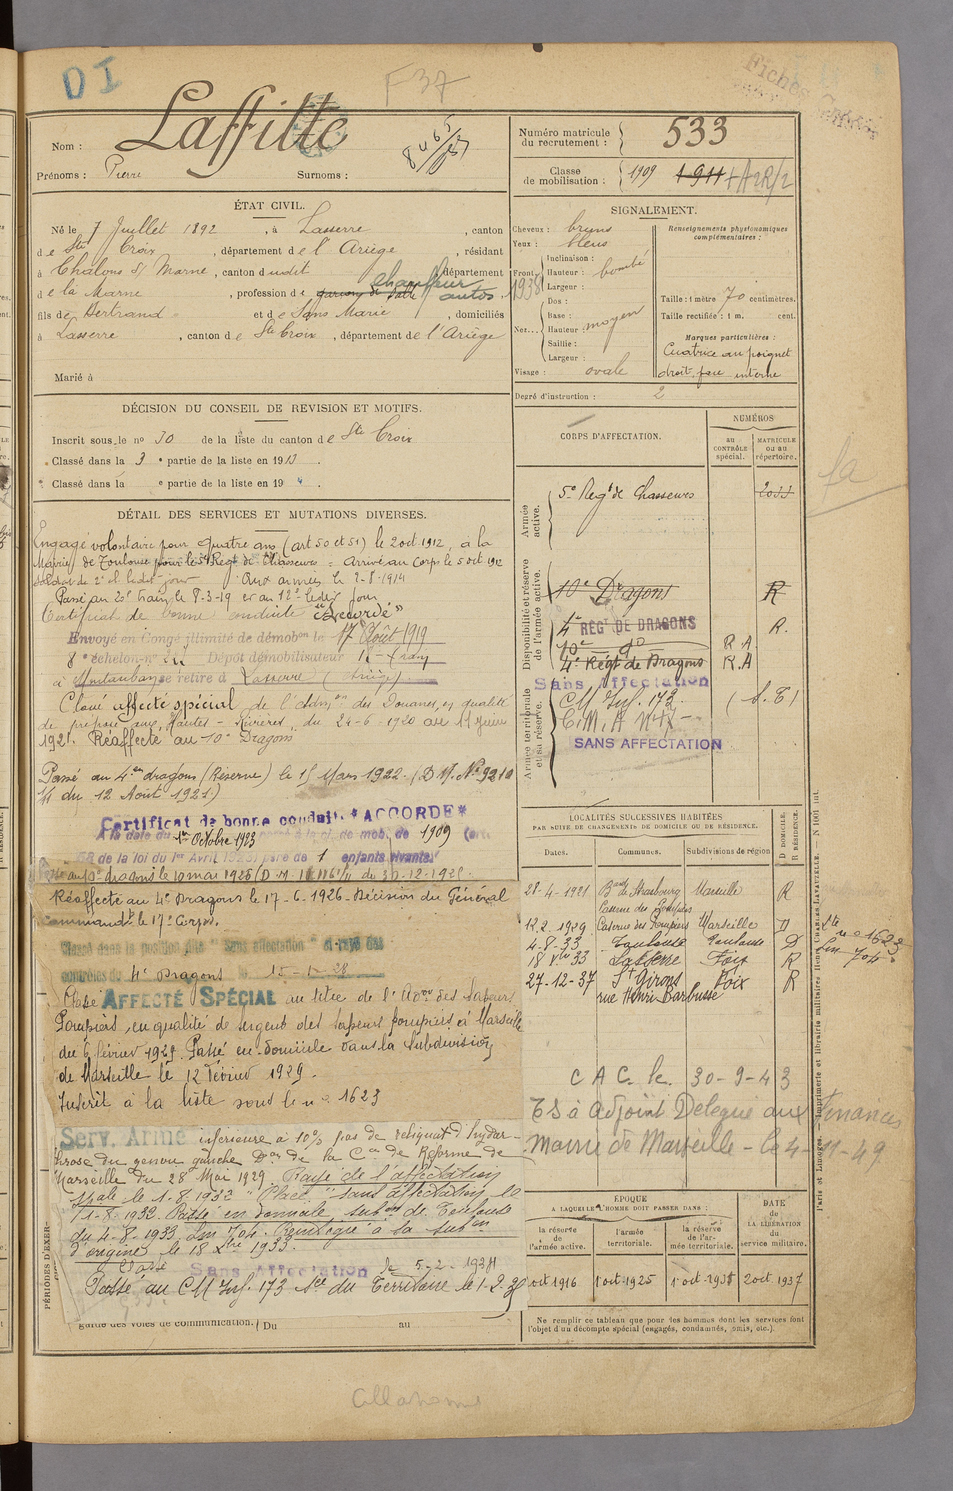 DI
F37
Fiches
Nom : Laffitte
8465/57
Prénoms : Pierre Surnoms :
Numéro matricule du recrutement : 533
Classe de mobilisation : 1909 1911
ÉTAT CIVIL.
Né le 7 Juillet 1892, à Lasserre, canton
de Ste Croix, département de l'Ariège, résidant
à Chalons s/ Marne, canton dudit, département
de la Marne, profession de garçon de salle chauffeur autos 1938
fils de Bertrand et de Sans Marie, domiciliés
à Lasserre, canton de Ste Croix, département de l'Ariège
Marié à
SIGNALEMENT.
Cheveux : bruns
Yeux : bleus
Front
Inclinaison :
Hauteur : bombé
Largeur :
Nez
Dos :
Base :
Hauteur : moyen
Saillie :
Largeur :
Visage : ovale
Renseignements physionomiques complémentaires :
Taille : 1 mètre 70 centimètres.
Taille rectifiée : 1 m. cent.
Marques particulières :
Cicatrice au poignet
droit face interne
Degré d'instruction : 2
DÉCISION DU CONSEIL DE REVISION ET MOTIFS.
Inscrit sous le no 30 de la liste du canton de Ste Croix
Classé dans la 3e partie de la liste en 1913.
Classé dans la e partie de la liste en 19
DÉTAIL DES SERVICES ET MUTATIONS DIVERSES.
Engagé volontaire pour quatre ans (art 50 et 51) le 2 oct. 1912, à la
Mairie de Toulouse pour le 5e Regt de Chasseurs = Arrivé au Corps le 5 oct 1912
soldat de 2e cl. ledit jour Aux armées le 2-8-1914
Passé au 20e train le 8-3-19 et au 12e ledit jour
Certificat de bonne conduite "Accordé"
Envoyé en Congé illimité de démobon le 17 Août 1919
8e échelon no 211 Dépôt démobilisateur Train
à Montauban se retire à Lasserre (Ariège)
Classé affecté spécial de l'Adon des Douanes, en qualité
de préposé aux Hautes-Rivières, du 24-6-1920 au 15 Juin
1921. Réaffecté au 10e Dragons
Passé au 4e dragons (Réserve) le 15 Mars 1922 (D M. No 9210
1/1 du 12 Août 1921)
Certificat de bonne conduite "ACCORDÉ"
A la date du 1er Octobre 1923 passé à la cl. de mob. de 1909 (art.
58 de la loi du 1er Avril 1923) père de 1 enfants vivants.
dragons le 10 mai 1926
Réaffecté au 4e Dragons le 17-6-1926 Décision du Général
Commandt le 17e Corps.
Classé dans la position dite "Sans affectation" et rayé des
contrôles du 4e Dragons le 15-1-28
Classé AFFECTÉ SPÉCIAL au titre de l'Adon des Sapeurs
Pompiers, en qualité de sergent des sapeurs pompiers à Marseille
du 6 février 1929. Passé en domicile dans la Subdivision
de Marseille le 12 février 1929.
Inscrit à la liste sous le no 1623
Serv. Armé inférieure à 10% pas de reliquat d'hydar-
throse du genou gauche Don de la Con de Réforme de
Marseille du 28 Mai 1929. Rayé de l'affectation
spéciale le 1-8-1932 "Placé" sans affectation le
1-8-1932. Passé en domicile subdon de Toulouse
du 4-8-1933 Lm 704. Réintégré à la subon
d'origine le 18 Xbre 1933.
Classé Sans Affectation le 5-2-1934
Passé au CM Inf. 173 Sce du Territoire le 1-2-39
PÉRIODES D'EXER-
garde des voies de communication. Du au
CORPS D'AFFECTATION.
NUMÉROS
au CONTRÔLE spécial.
MATRICULE ou au répertoire.
Armée active.
5e Regt de Chasseurs 2033
Disponibilité et réserve de l'armée active.
10e Dragons R
4e RÉGT DE DRAGONS R.
10e do R A.
4e Régt de Dragons R.A
Sans Affectation
Armée territoriale et sa réserve.
CM Inf. 173. (S.T)
C.M.A
SANS AFFECTATION
LOCALITÉS SUCCESSIVES HABITÉES
PAR SUITE DE CHANGEMENTS DE DOMICILE OU DE RÉSIDENCE.
Dates. Communes. Subdivisions de région D DOMICILE. R RÉSIDENCE.
28-4-1921 Band de Strasbourg Marseille R
Caserne des Pompiers
12.2.1929 Caserne des Pompiers Marseille D
4-8-33 Toulouse Toulouse D
18 Xbre 33 Lasserre Foix R
27-12-37 St Girons Foix R
rue Henri Barbusse
Ste no 1623
Lm 704
C A C. le 30-9-43
ES à Adjoint Délégué aux Finances
Mairie de Marseille - le 4-11-49
ÉPOQUE
A LAQUELLE L'HOMME DOIT PASSER DANS :
la réserve de l'armée active. l'armée territoriale. la réserve de l'armée territoriale.
DATE de LA LIBÉRATION du service militaire.
1 oct 1916 1 oct 1925 1 oct 1935 2 oct 1937
Ne remplir ce tableau que pour les hommes dont les services font
l'objet d'un décompte spécial (engagés, condamnés, omis, etc.).
Paris et Limoges. — Imprimerie et librairie militaires Henri CHARLES-LAVAUZELLE. — N 1001 int.